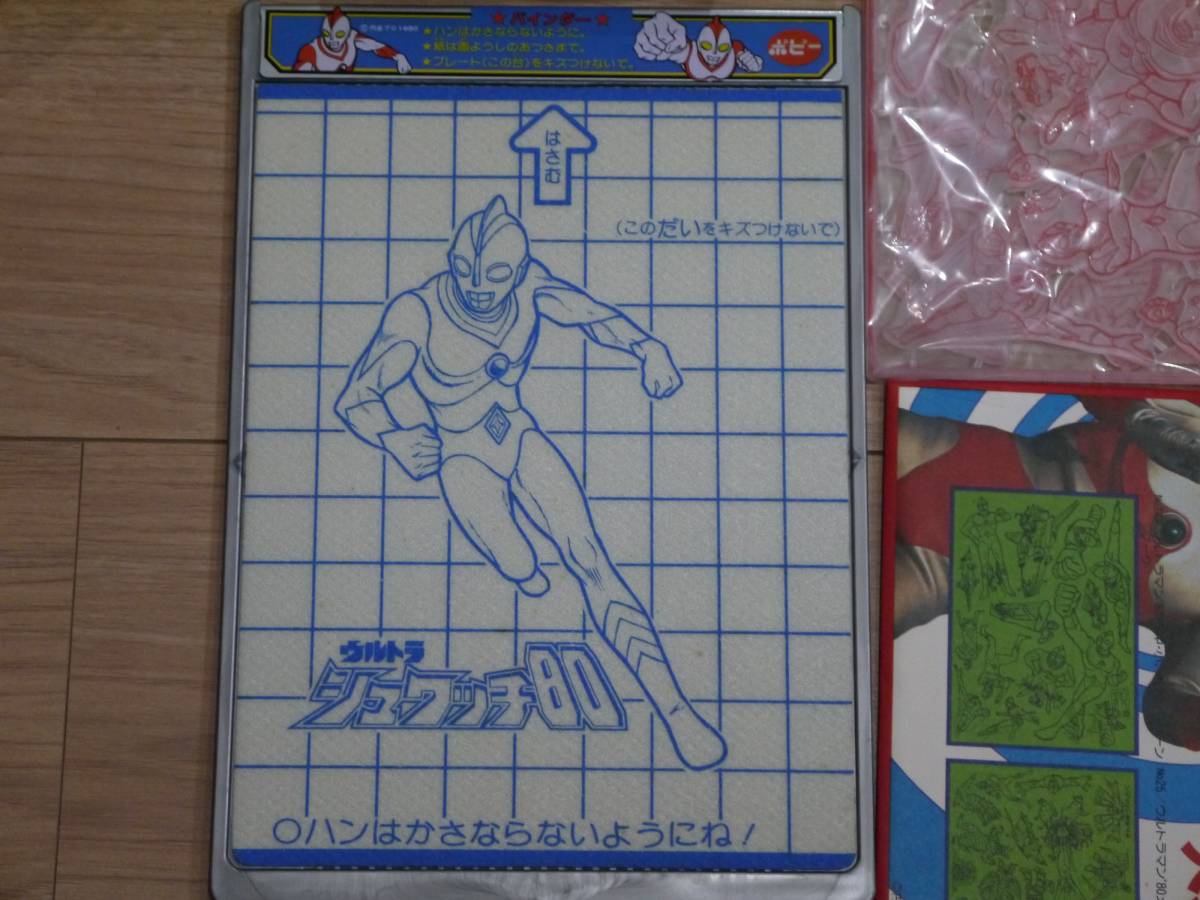 ★バインダー★
©円谷プロ1980
★ハンはかさならないように。
★紙は画ようしのあつさまで。
★プレート(この台)をキズつけないで。
ポピー
はさむ
(このだいをキズつけないで)
ウルトラ
シュワッチ80
○ハンはかさならないようにね!
No.25
ウルトラマン80